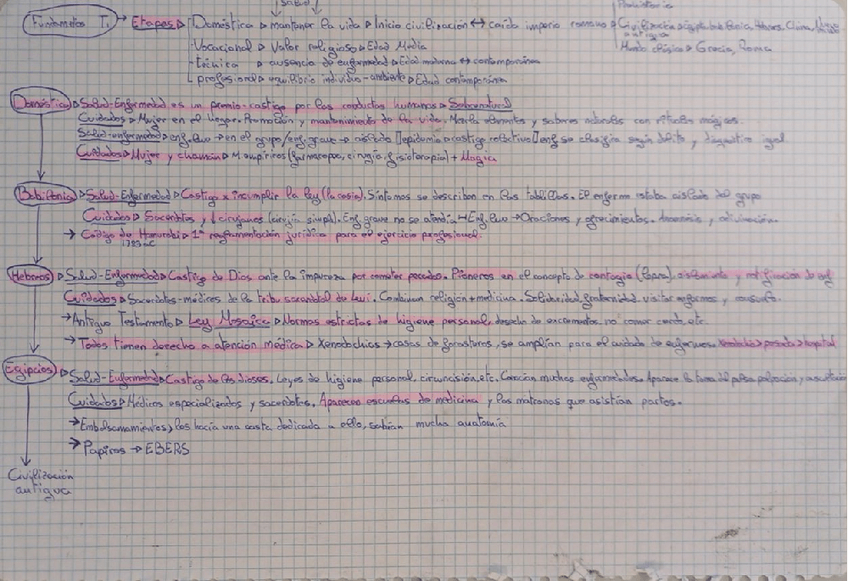 Salud
Prehistoria
Fundamentos T.1 → Etapas ▷ Doméstica ▷ mantener la vida ▷ Inicio civilización ↔ caída imperio romano ▷ Civilización antigua ▷ China,
Mundo clásico ▷ Grecia, Roma
Vocacional ▷ Valor religioso ▷ Edad Media
técnica ▷ ausencia de enfermedad ▷ Edad moderna ↔ contemporánea
profesional ▷ equilibrio individuo-ambiente ▷ Edad contemporánea
Doméstica ▷ Salud-Enfermedad es un premio-castigo por las conductas humanas ▷ Sobrenatural
Cuidados ▷ Mujer en el hogar. Promoción y mantenimiento de la vida. y saberes con rituales mágicos.
Salud-enfermedad ▷ enf. leve → en el grupo/enf. grave → aislado [epidemia castigo colectivo] enf. se según delito, y diagnóstico igual
Cuidados ▷ Mujer y chamán ▷ M. empíricos (farmacopea, cirugía, fisioterapia) + Magica
Babilonia ▷ Salud-Enfermedad ▷ Castigo x incumplir la ley (la casia). Síntomas se describían en las tablillas. El enfermo estaba aislado del grupo
Cuidados ▷ Sacerdotes y cirujanos (cirujía simple). Enf. grave no se atendía. Enf. leve → Oraciones y ofrecimientos. y adivinación.
→ Código de Hamurabi ▷ 1ª reglamentación jurídica para el ejercicio profesional.
Hebreos ▷ Salud-Enfermedad ▷ Castigo de Dios ante la impureza por cometer pecados. Pioneros en el concepto de contagio (lepra), aislamiento y notificación de enf
Cuidados ▷ Sacerdotes-médicos de la tribu sacerdotal de Levi. Combinan religión + medicina. Solidaridad, fraternidad, visitar enfermos y
→ Antiguo Testamento ▷ Ley Mosaica ▷ Normas estrictas de higiene personal, desecho de excrementos, no comer cerdo, etc.
→ Todos tienen derecho a atención médica ▷ Xenodochios → casas de forasteros, se amplían para el cuidado de enfermos. Xenodochio > posada > hospital
Egipcios ▷ Salud-Enfermedad ▷ Castigo de los dioses. Leyes de higiene personal, circuncisión, etc. Conocían muchas enfermedades. Aparece la toma del pulso, palpación y auscultación
Cuidados ▷ Médicos especializados y sacerdotes. Aparecen escuelas de medicina y las matronas que asistían partos.
→ Embalsamamientos, los hacía una casta dedicada a ello, sabían mucha anatomía
→ Papiros → EBERS
Civilización
antigua